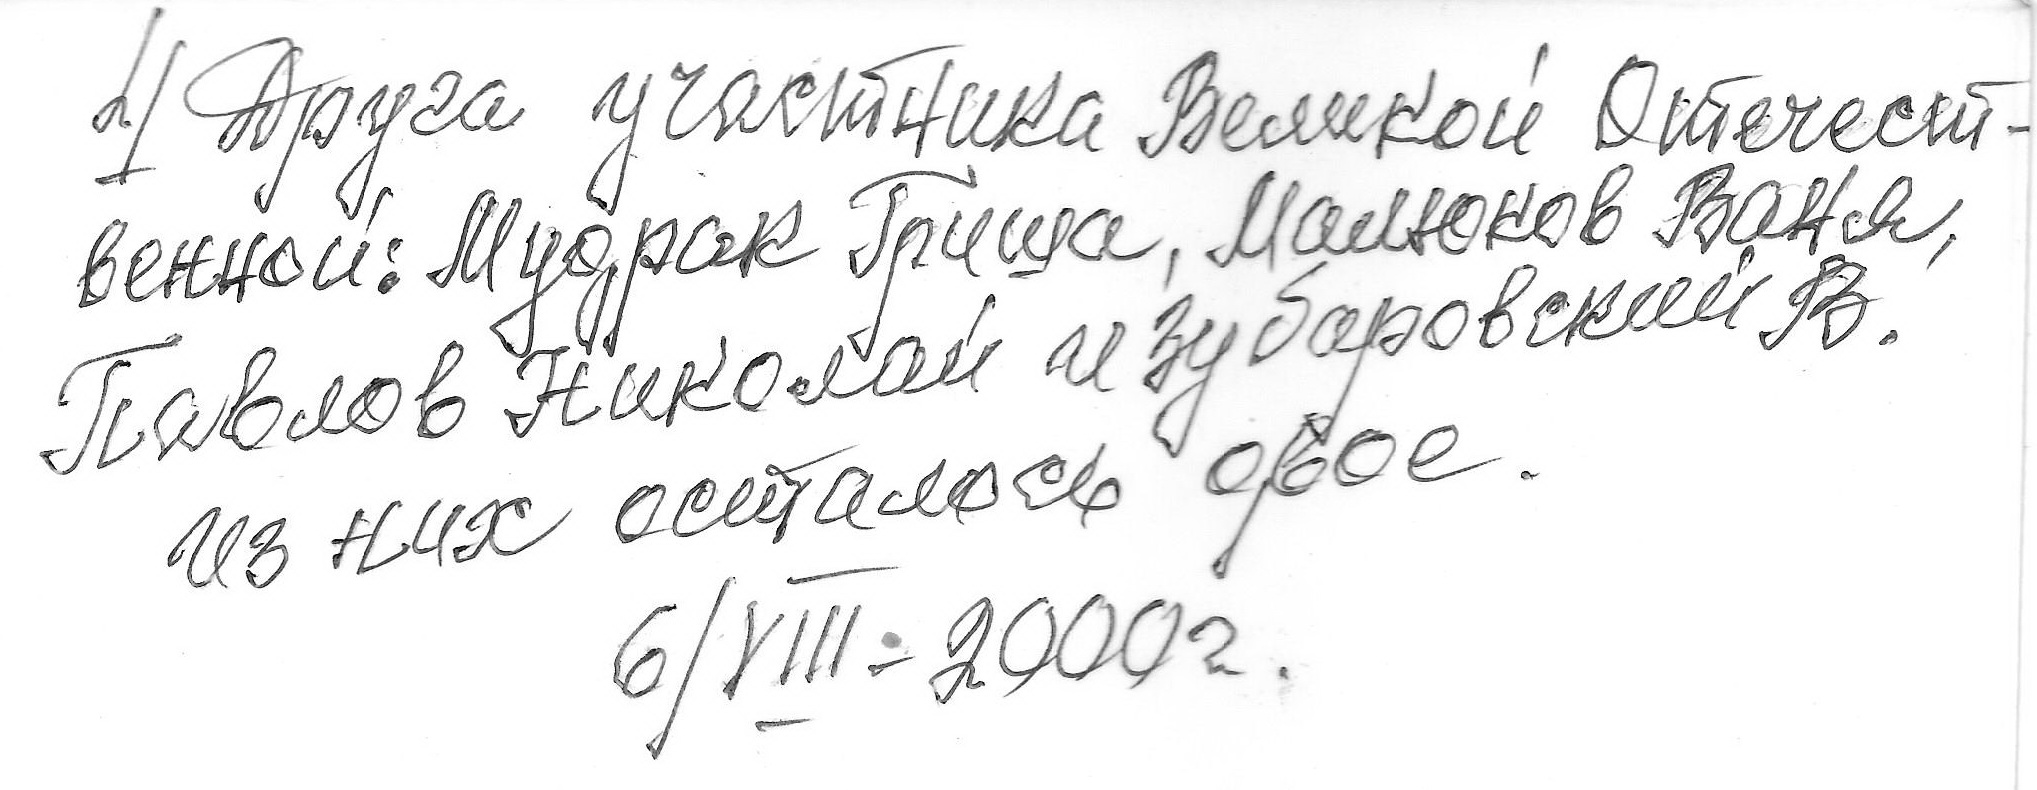 4/ Друга участника Великой Отечест-
венной: Мудрак Гриша, Малюков Ваня,
Павлов Николай и Зубаровский В.
из них осталось двое.
6/VIII-2000г.